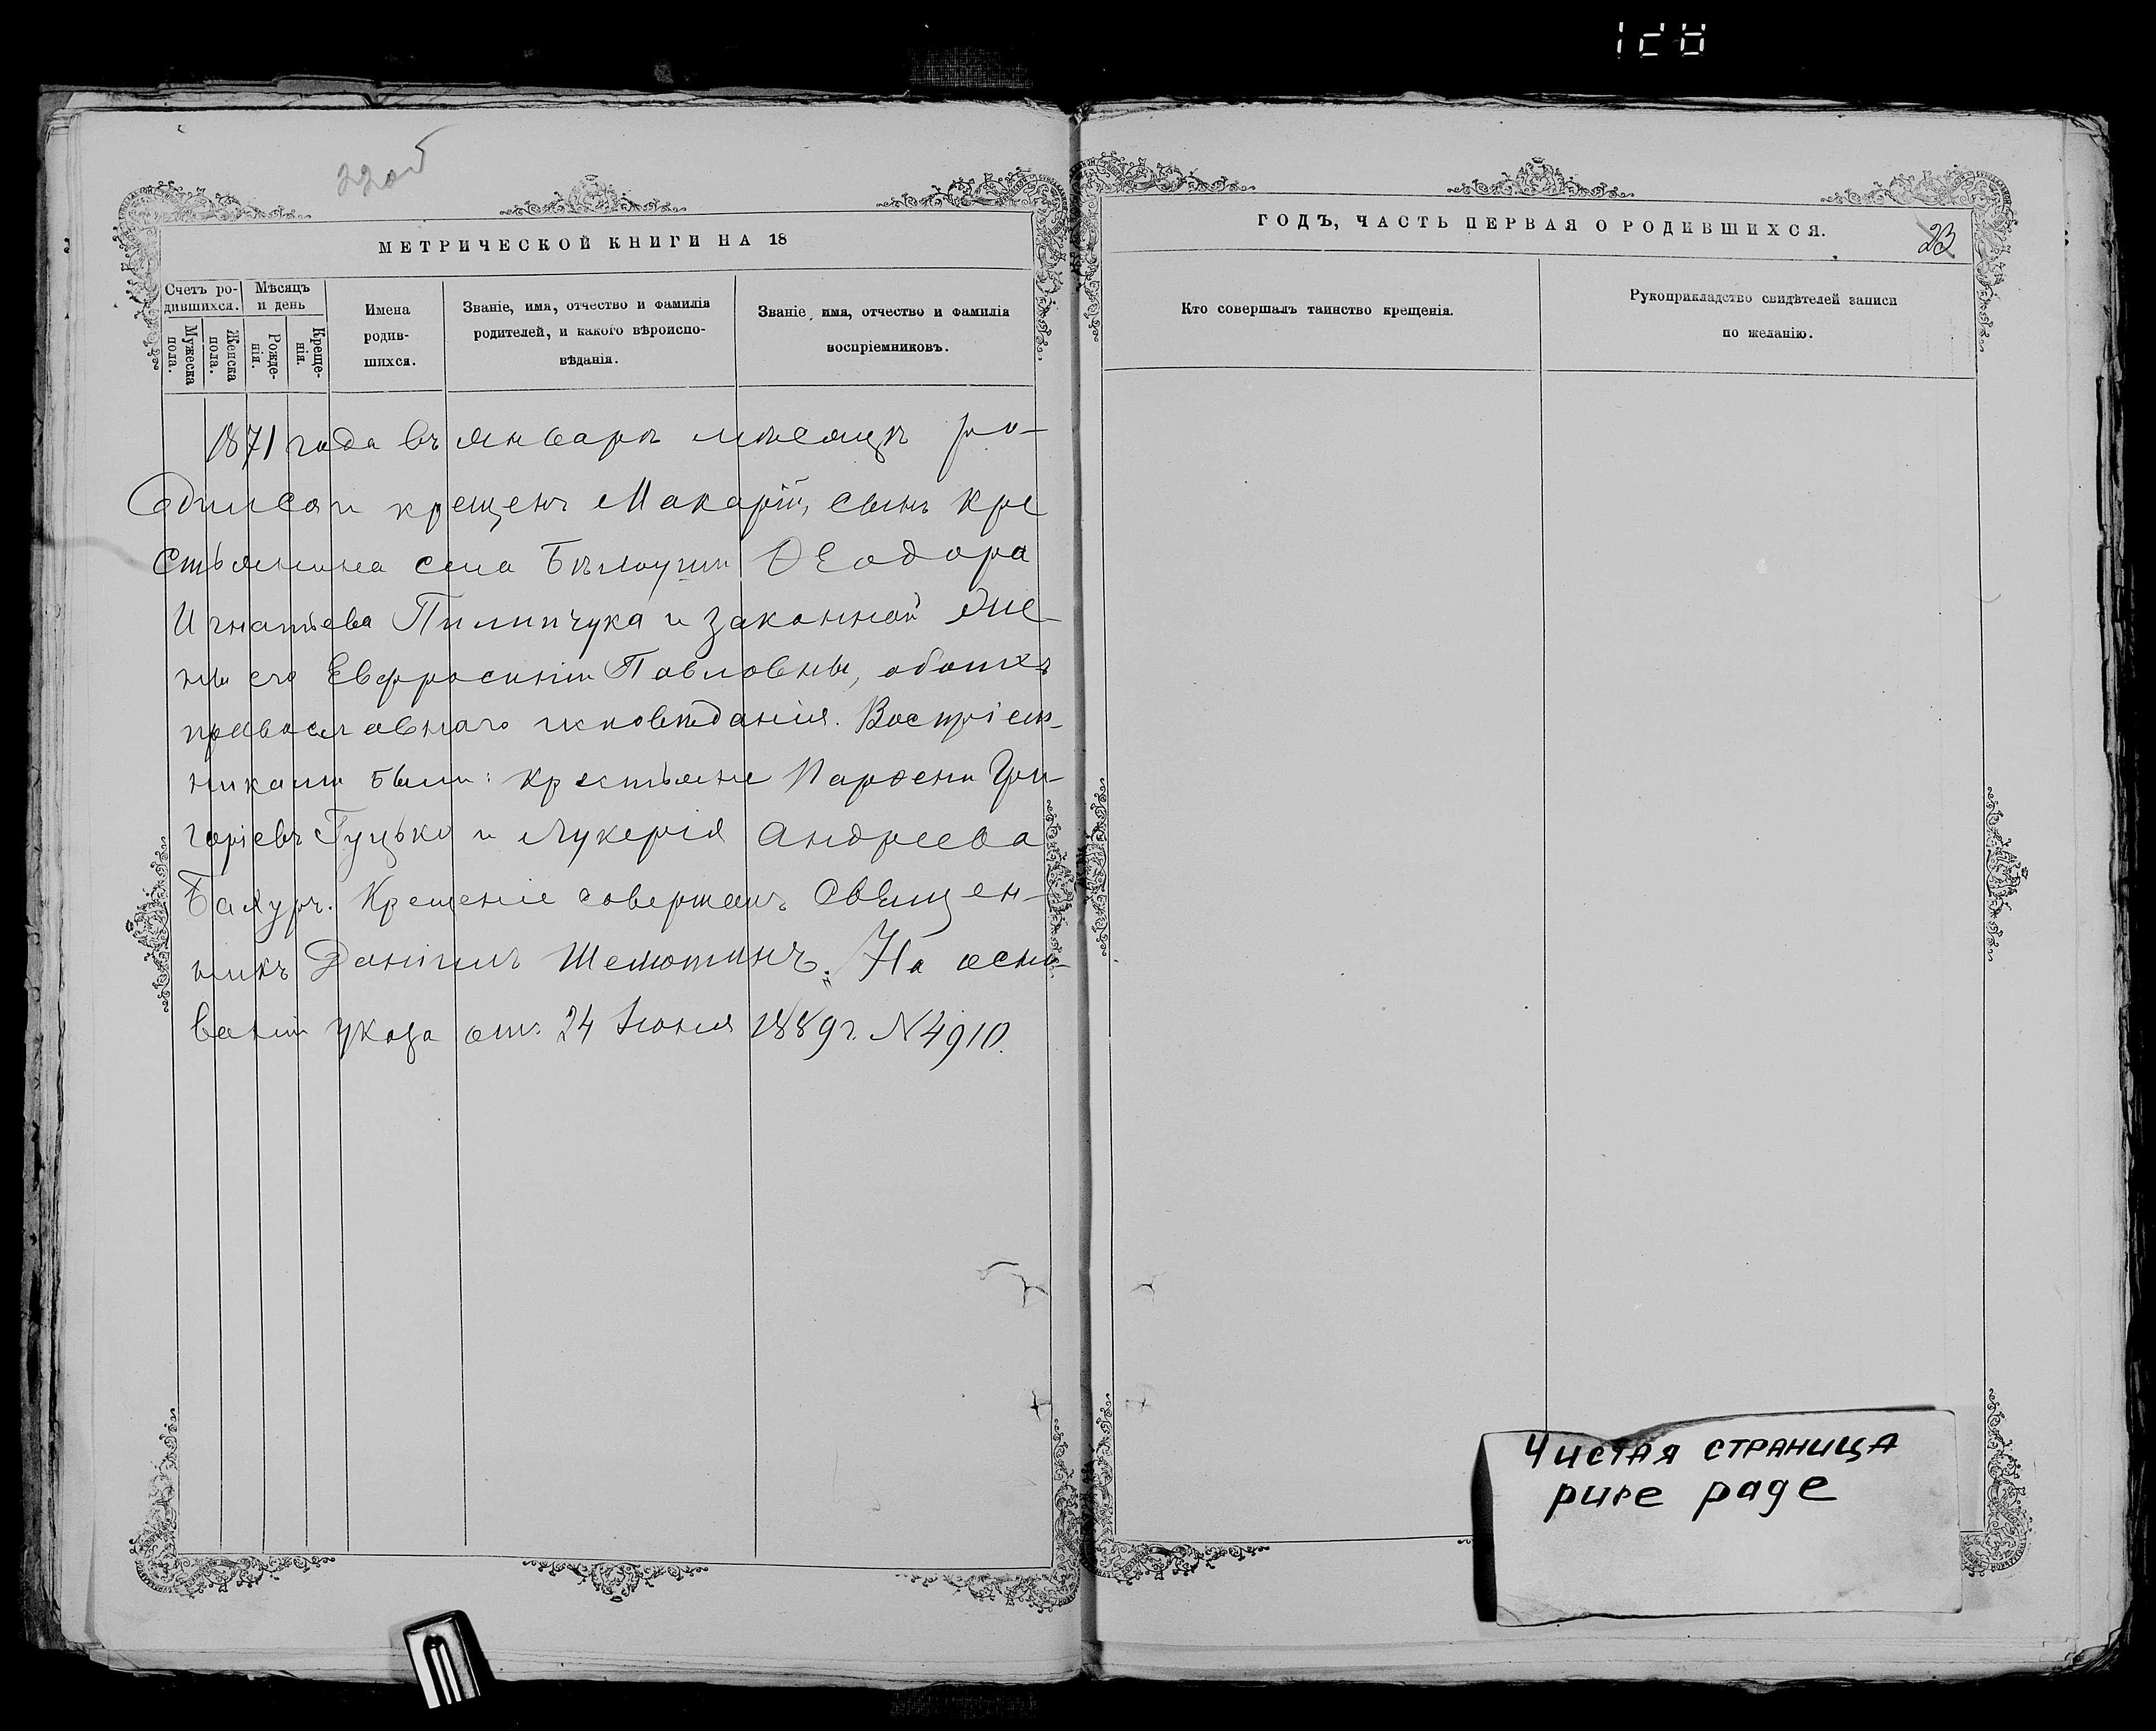 22об
МЕТРИЧЕСКОЙ КНИГИ НА 18
Счетъ ро-
дившихся.
Мѣсяцъ
и день
Мужеска
пола.
Женска
пола.
Рожде-
нія.
Креще-
нія.
Имена
родив-
шихся.
Званіе, имя, отчество и фамилія
родителей, и какого вѣроиспо-
вѣданія.
Званіе, имя, отчество и фамилія
воспріемниковъ.
1871 года въ январѣ мѣсяцѣ ро-
дился и крещенъ Макарій, сынъ кре
стьянина села Ѳеодора
Игнатьева Пилипчука и законной же-
ны его Евфросиніи Павловны, обоихъ
православнаго исповѣданія. Воспріем-
никами были: крестьяне Парѳени Гри-
горіевъ Гуцько и Лукерія Андреева
Крещеніе совершалъ Священ-
никъ Даніилъ Шелютинъ. На осно-
ваніи указа отъ 24 Іюня 1889 г. № 4910.
ГОДЪ, ЧАСТЬ ПЕРВАЯ О РОДИВШИХСЯ.
23
Кто совершалъ таинство крещенія.
Рукоприкладство свидѣтелей записи
по желанію.
Чистая страница
pure page